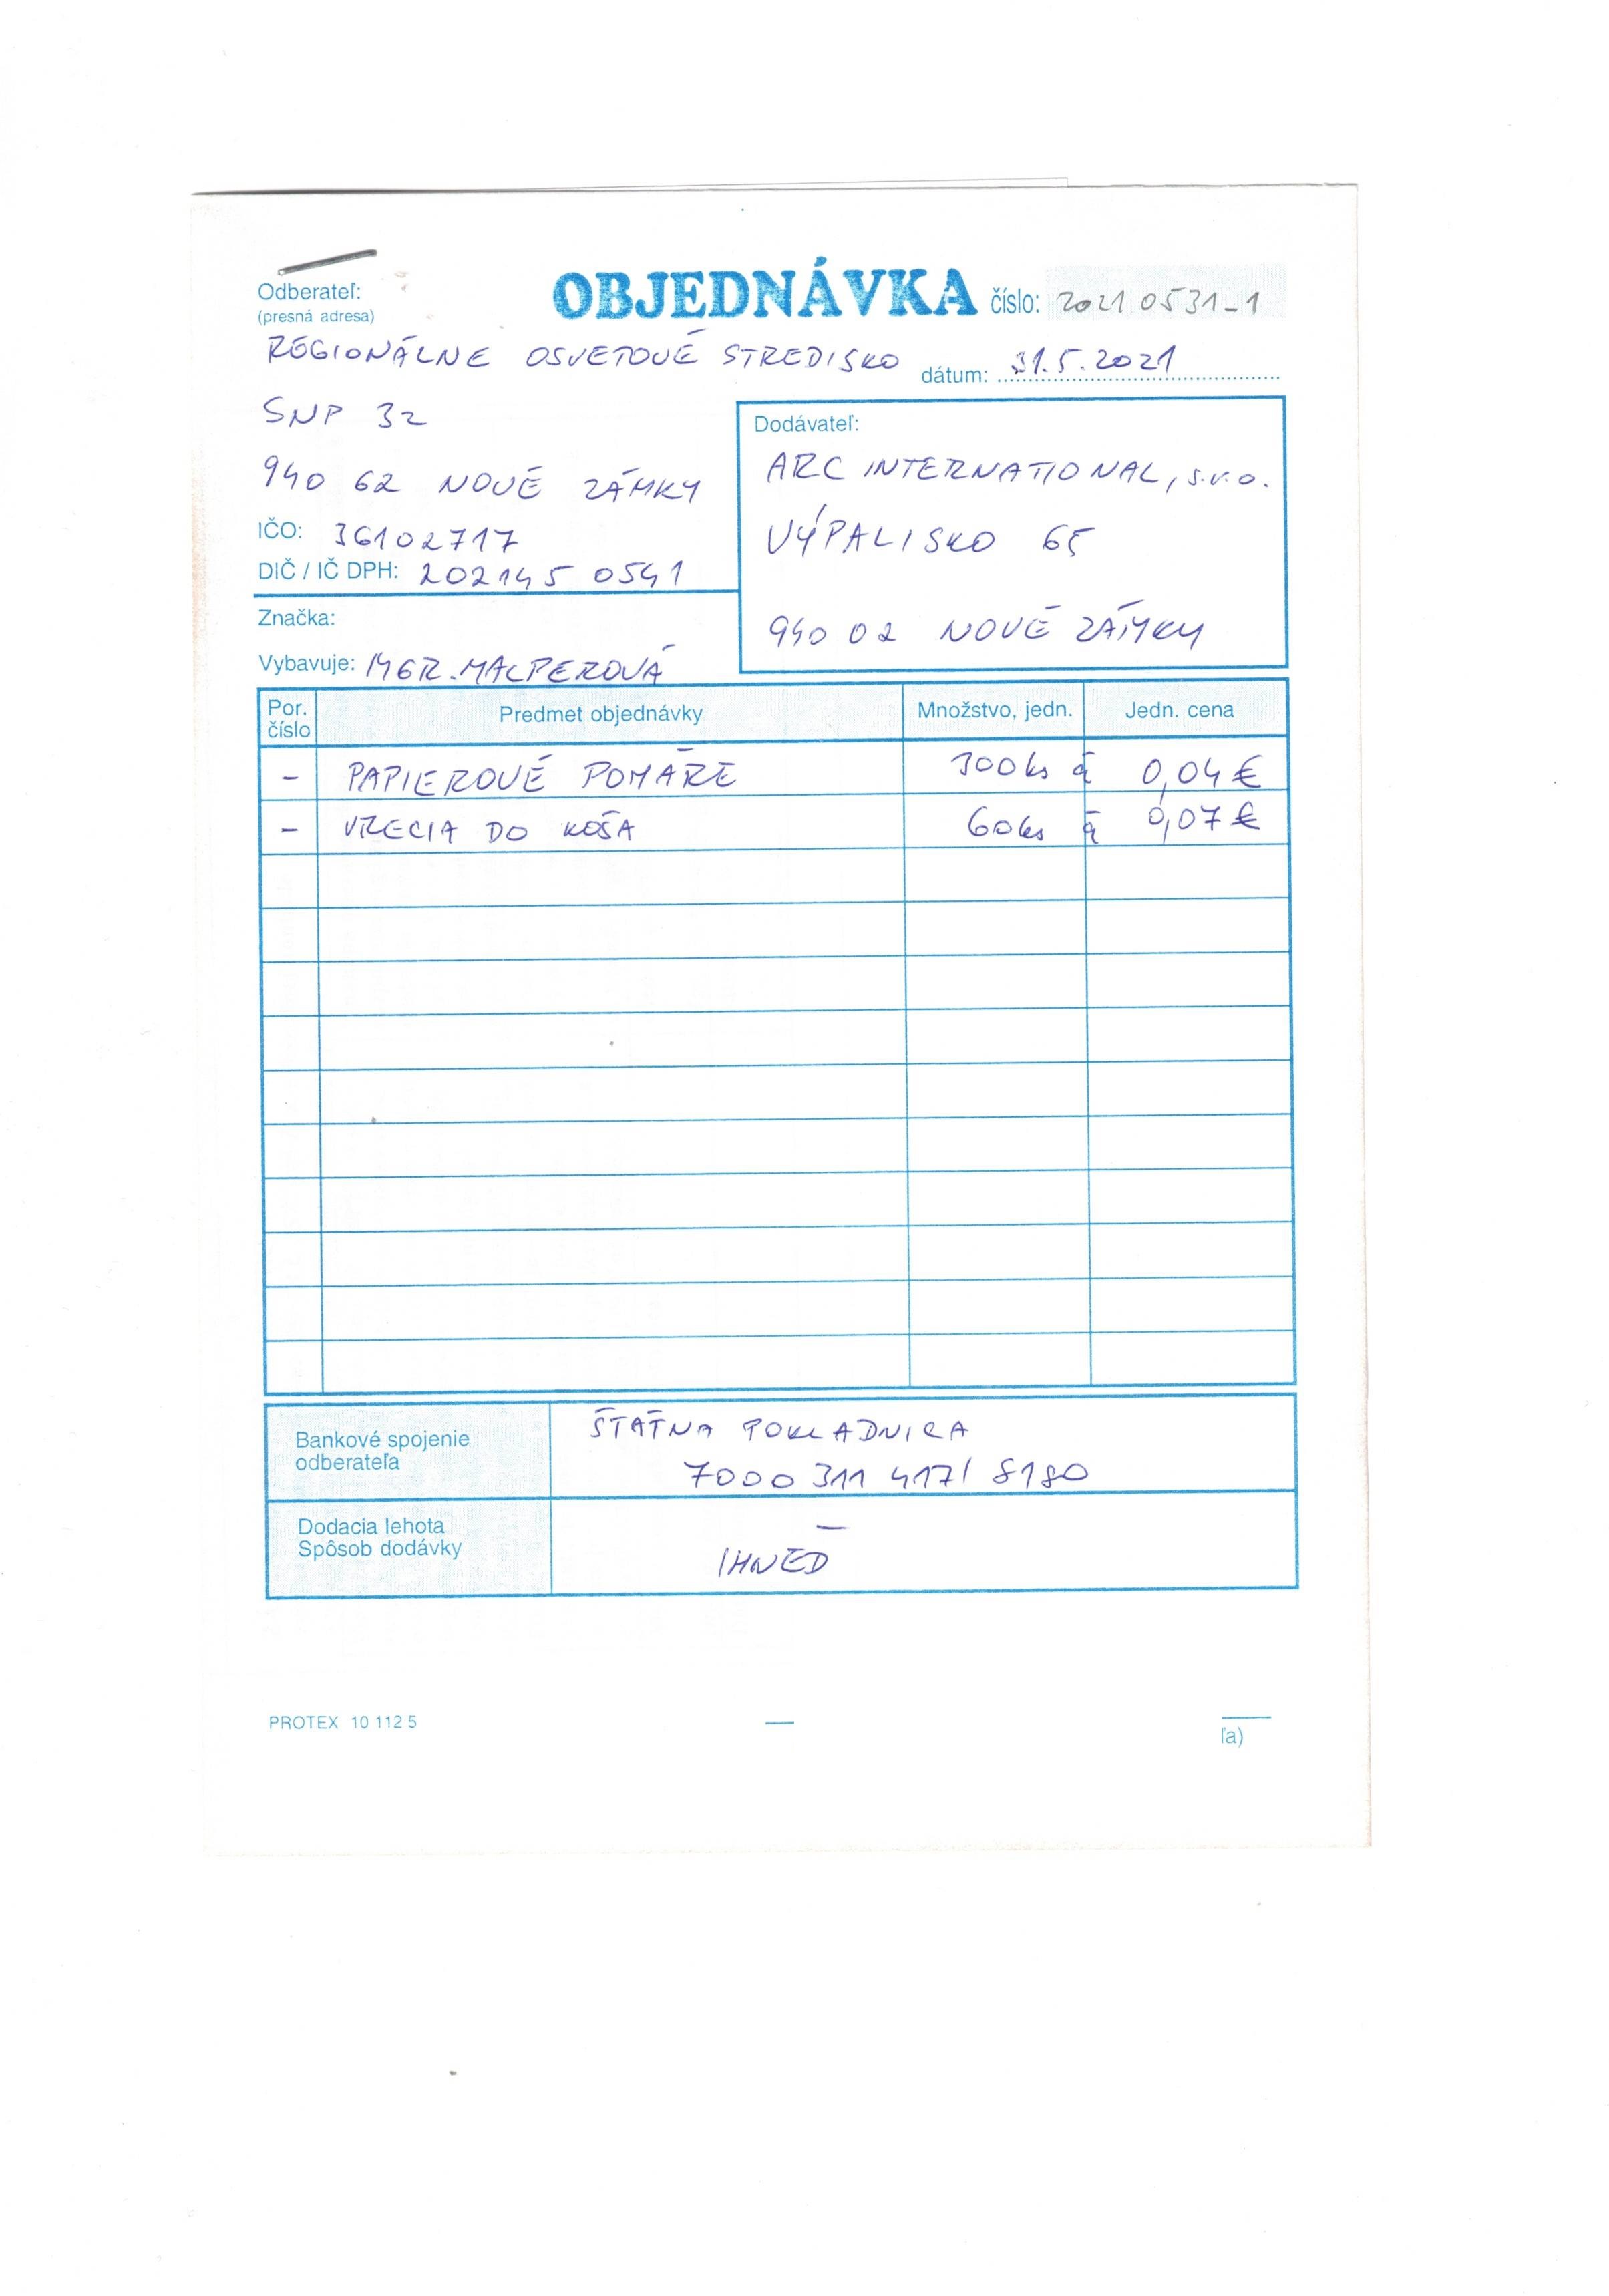 Odberateľ:
(presná adresa)
OBJEDNÁVKA číslo: 2021 0531-1
REGIONÁLNE OSVETOVÉ STREDISKO
dátum: 31.5.2021
SNP 32
940 62 NOVÉ ZÁMKY
IČO: 36102717
DIČ / IČ DPH: 202145 0541
Značka:
Vybavuje: MGR. MALPEROVÁ
Dodávateľ:
ARC INTERNATIONAL, s.r.o.
VÝPALISKO 65
940 02 NOVÉ ZÁMKY
Por. číslo Predmet objednávky Množstvo, jedn. Jedn. cena
- PAPIEROVÉ POHÁRE 300ks á 0,04 €
- VRECIA DO KOŠA 60ks á 0,07 €
Bankové spojenie
odberateľa
ŠTÁTNA POKLADNICA
7000 311 417/ 8180
Dodacia lehota
Spôsob dodávky
IHNEĎ
PROTEX 10 112 5
ľa)